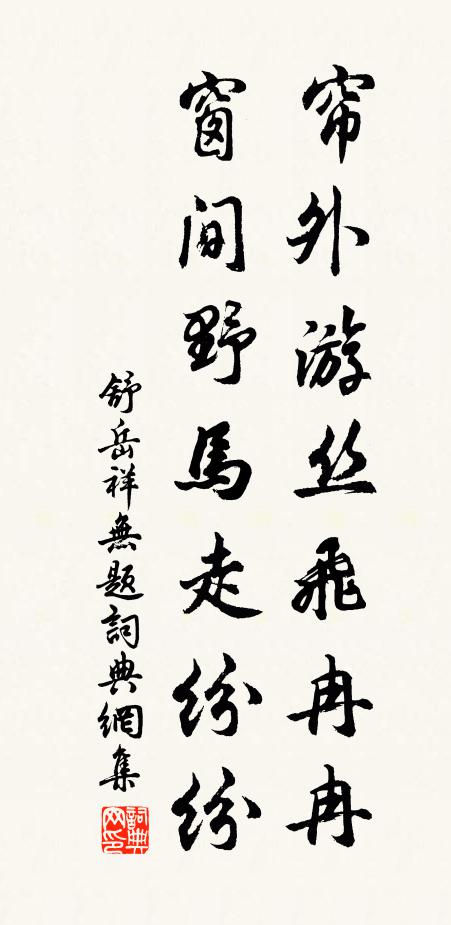 帘外游丝飛冉冉
窗間野馬走紛紛
舒岳祥無题詞典網集
詞典网印